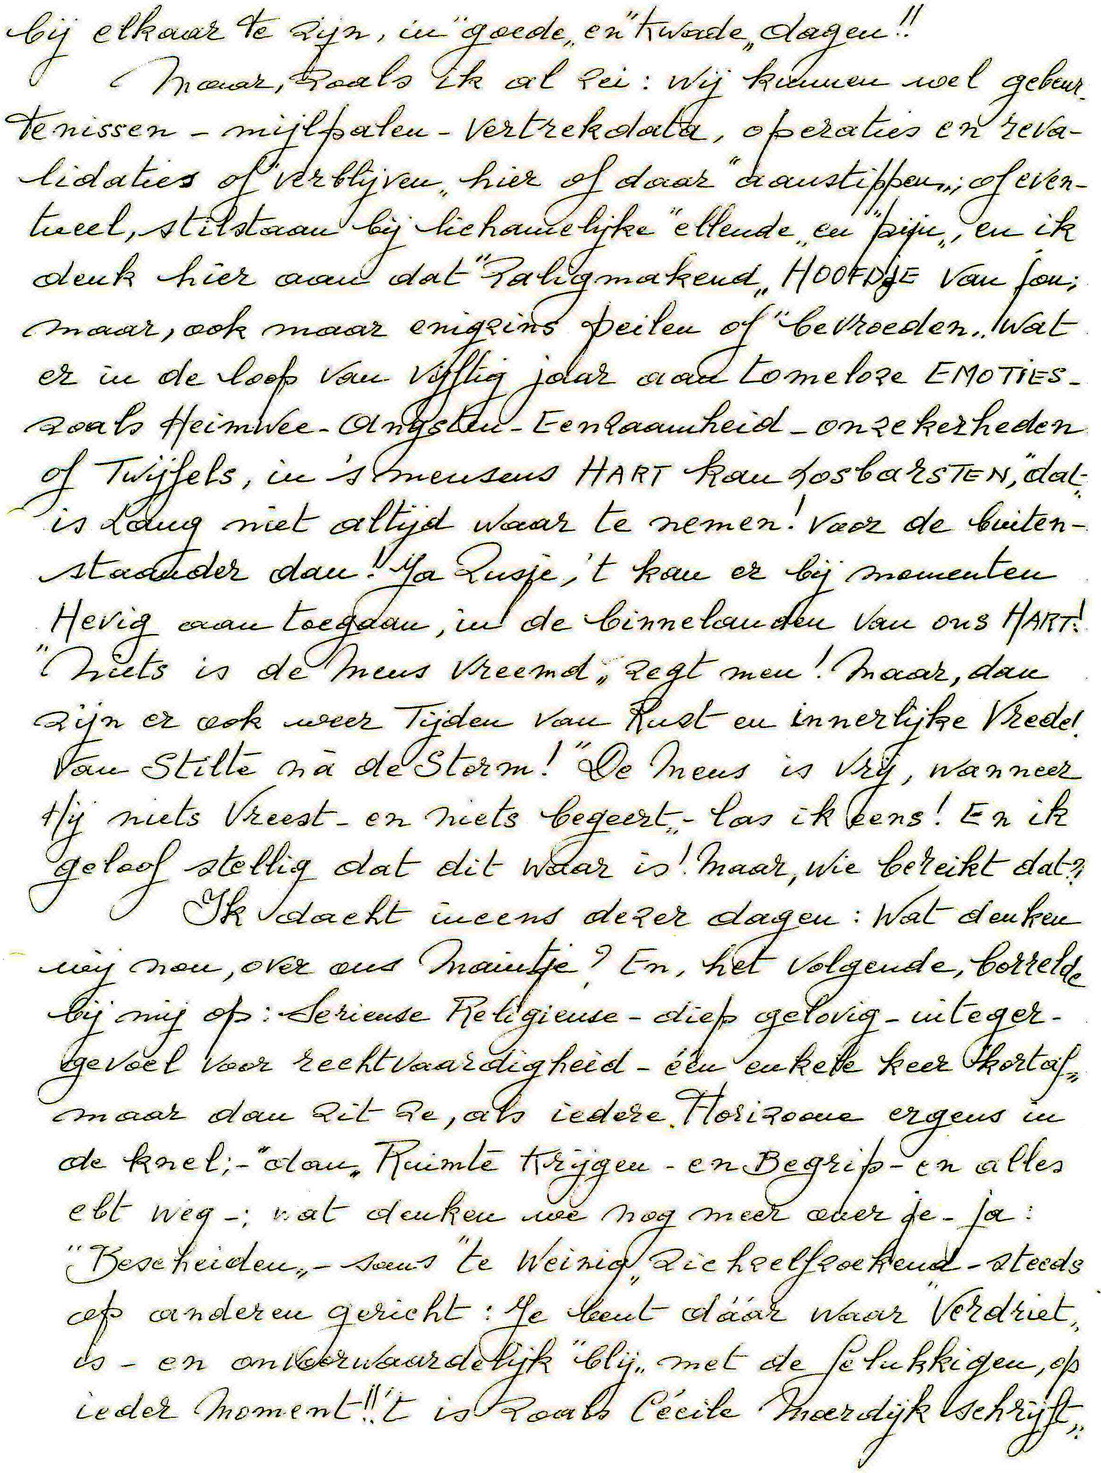 bij elkaar te zijn, in "goede„ en "kwade„ dagen!!
Maar, zoals ik al zei: Wij kunnen wel gebeur-
tenissen - mijlpalen - Vertrekdata, operaties en reva-
lidaties of "verblijven„ hier of daar "aanstippen„; of even-
tueel, stilstaan bij lichamelijke "ellende„ en "pijn„, en ik
denk hier aan dat "Zaligmakend„ HOOFDJE van jou;
maar, ook maar enigzins peilen of "bevroeden„ Wat
er in de loop van vijftig jaar aan tomeloze EMOTIES -
zoals Heimwee - Angsten - Eenzaamheid - onzekerheden
of Twijfels, in 's mensens HART kan LosbarsTEN, "dat„
is Lang niet altijd waar te nemen! Voor de buiten-
staander dan! Ja Zusje, 't kan er bij momenten
Hevig aan toegaan, in de binnelanden van ons HART!
"Niets is de Mens Vreemd„ zegt men! Maar, dan
zijn er ook weer Tijden van Rust en innerlijke Vrede!
Van Stilte ná de Storm! "De Mens is Vrij, wanneer
Hij niets Vreest - en niets begeert„ - las ik eens! En ik
geloof stellig dat dit waar is! Maar, wie bereikt dat?
Ik dacht ineens dezer dagen: Wat denken
wij nou, over ons Maintje? En, het volgende, borrelde
bij mij op: Serieuse Religieuse - diep gelovig - integer -
gevoel voor rechtvaardigheid - één enkele keer "kortaf„
maar dan zit ze, als iedere Horizoone ergens in
de knel; - "dan„ Ruimte Krijgen - en Begrip - en alles
ebt weg -; wat denken we nog meer over je - ja:
"Bescheiden„ - soms "te Weinig„ zichzelfzoekend - steeds
op anderen gericht: Je bent dáár waar "Verdriet„
is - en onvoorwaardelijk "blij„ met de Gelukkigen, op
ieder Moment!! 't is zoals Cécile Moerdijk schrijft„: